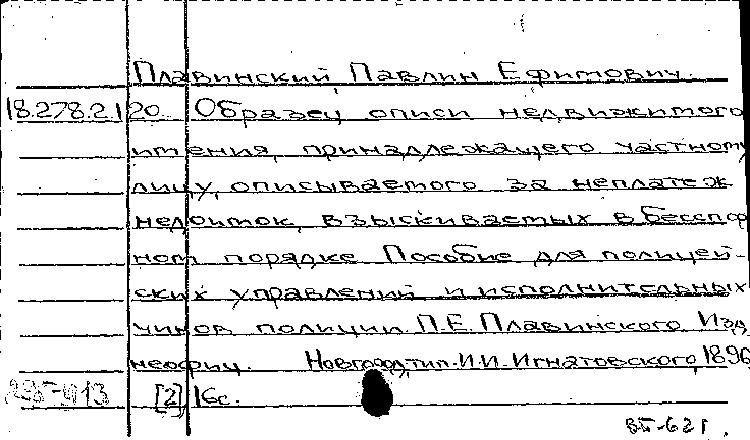 Плавинский, Павлин Ефимович.
18.278.2.120. Образец описи недвижимого
имения, принадлежащего частному
лицу, описываемого за неплатеж
недоимок, взыскиваемых в бесспор
ном порядке Пособие для полицей-
ских управлений и исполнительных
чинов полиции. П.Е. Плавинского Изд.
неофиц. Новгород, тип. И.И. Игнатовского, 1896
[2], 16с.
ВБ-621.